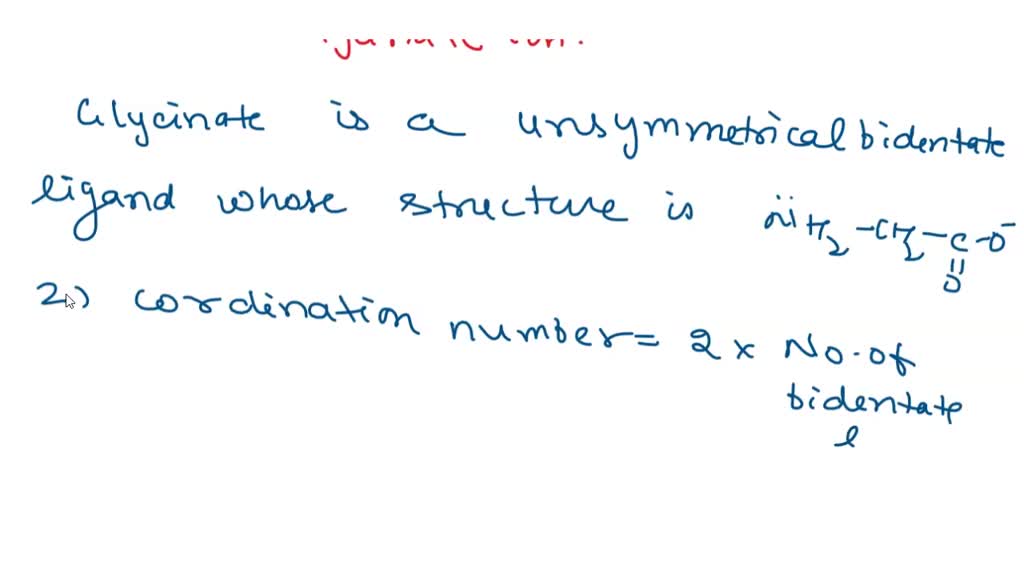 Glycinate is a unsymmetrical bidentate
ligand whose structure is N̈H2-CH2-C-O⁻
||
O
2) cordination number= 2 x No. of
bidentate
l